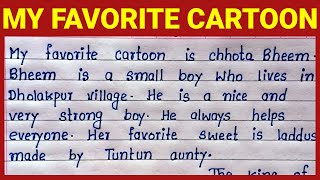 MY FAVORITE CARTOON
My favorite cartoon is chhota Bheem.
Bheem is a small boy who lives in
Dholakpur village. He is a nice and
very strong boy. He always helps
everyone. Her favorite sweet is laddus
made by Tuntun aunty.
The king of